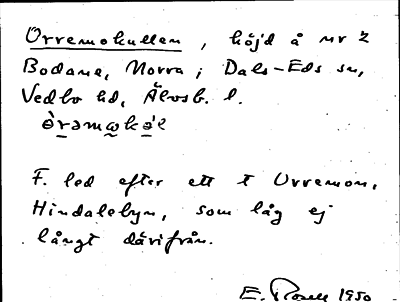 Orremokullen, höjd å nr 2
Bodane, Norra i Dals-Eds sn,
Vedbo hd, Älvsb. l.
F. led efter ett t Orremon,
Hindalebyn, som låg ej
långt därifrån.
E. Rosell 1950